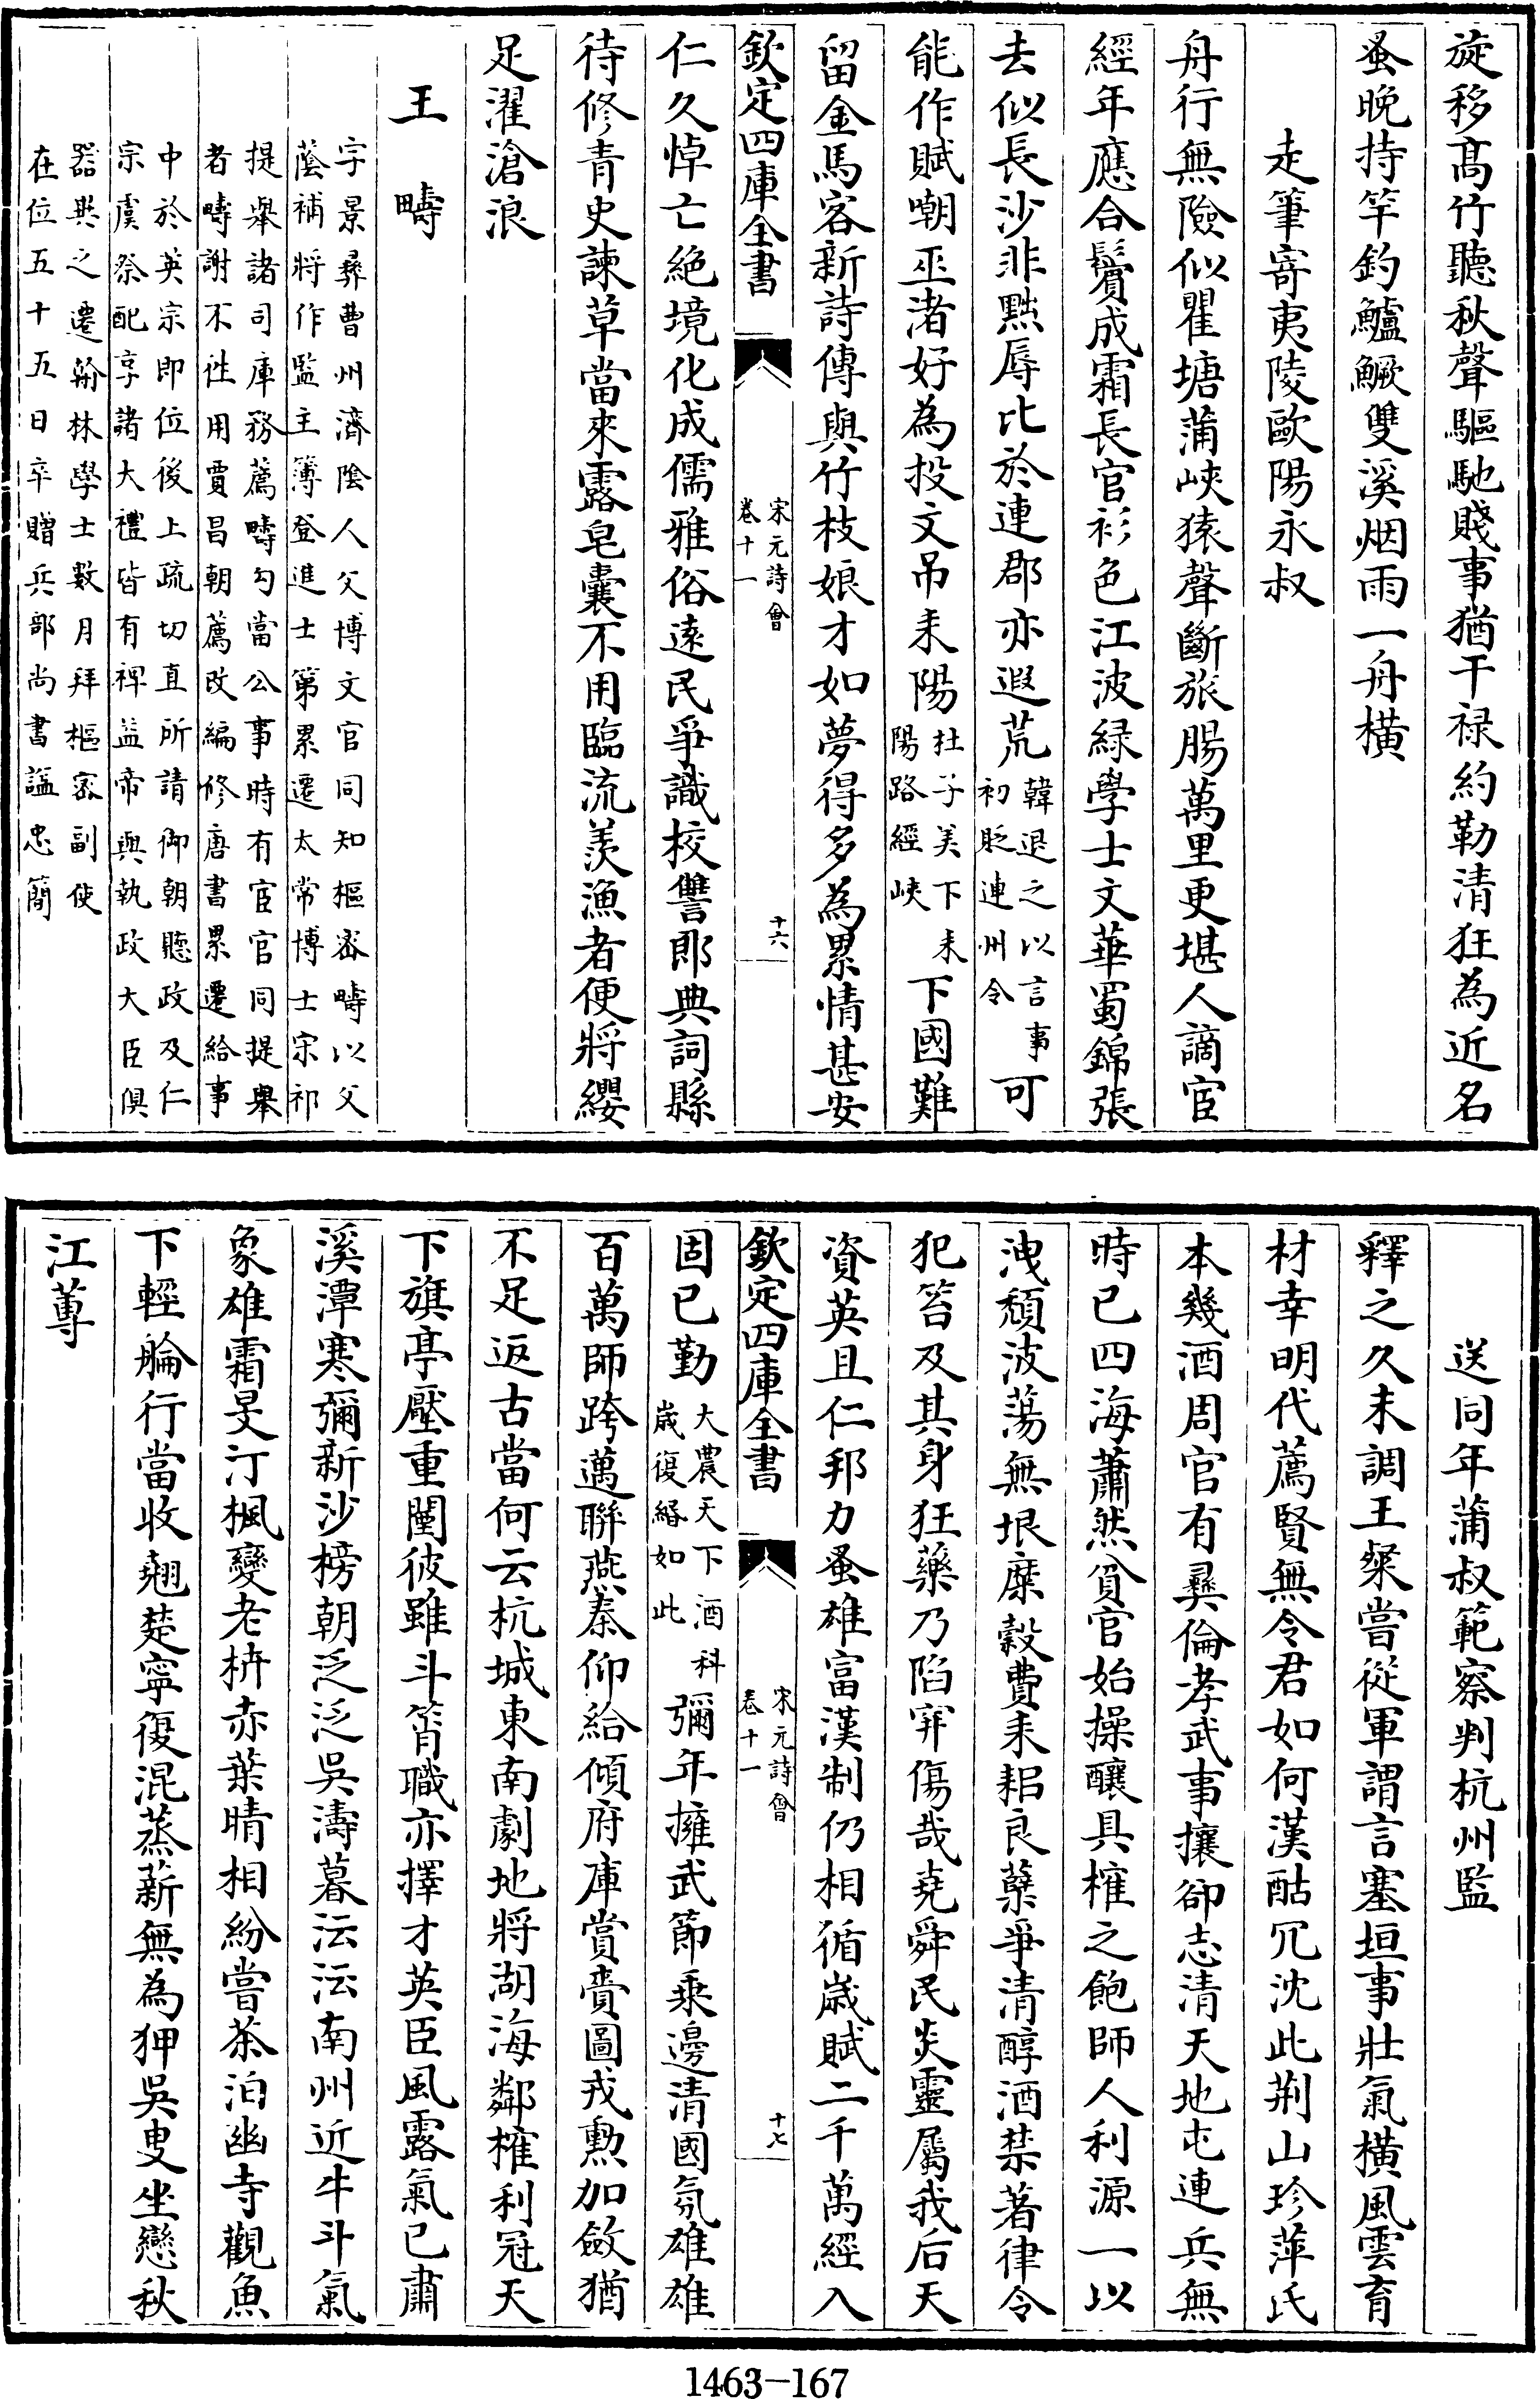 旋移髙竹聽秋聲驅馳賤事猶干禄約勒清狂為近名
蚤晚持竿釣鱸鱖雙溪烟雨一舟横
走筆寄夷陵歐陽永叔
舟行無險似瞿塘蒲峽猿聲斷旅腸萬里更堪人謫宦
經年應合鬢成霜長官衫色江波緑學士文華蜀錦張
去似長沙非黜辱比於連郡亦遐荒韓退之以言事初貶連州令可
能作賦嘲巫渚好為投文吊耒陽杜子美下耒陽路經峽下國難
留金馬客新詩傳與竹枝娘才如夢得多為累情甚安
欽定四庫全書
宋元詩會
卷十一
十六
仁久悼亡絶境化成儒雅俗遠民爭識校讐郎典詞縣
待修青史諫草當來露皂囊不用臨流羡漁者便將纓
足濯滄浪
王疇
字景彞曹州濟隂人父博文官同知樞宻疇以父
蔭補將作監主簿登進士第累遷太常博士宋祁
提舉諸司庫務薦疇勾當公事時有宦官同提舉
者疇謝不徃用賈昌朝薦改編修唐書累遷給事
中於英宗即位後上疏切直所請御朝聽政及仁
宗虞祭配享諸大禮皆有禆益帝與執政大臣俱
器異之遷翰林學士數月拜樞宻副使
在位五十五日卒贈兵部尚書謚忠簡
送同年蒲叔範察判杭州監
釋之久未調王粲嘗從軍謂言塞垣事壯氣横風雲育
材幸明代薦賢無令君如何漢酤冗沈此荆山珍萍氏
本幾酒周官有彞倫孝武事攘卻志清天地屯連兵無
時已四海蕭然貧官始操釀具榷之飽師人利源一以
洩頽波蕩無垠糜穀費耒耜良蘖爭清醇酒禁著律令
犯笞及其身狂藥乃陷穽傷哉堯舜民炎靈屬我后天
資英且仁邦力蚤雄富漢制仍相循嵗賦二千萬經入
欽定四庫全書
宋元詩會
卷十一
十七
固已勤大農天下酒科嵗復緡如此彌年擁武節乘邊清國氛雄雄
百萬師跨邁聯燕秦仰給傾府庫賞賚圖戎勲加斂猶
不足返古當何云杭城東南劇地將湖海鄰榷利冠天
下旗亭壓重闉彼雖斗筲職亦擇才英臣風露氣已肅
溪潭寒彌新沙榜朝泛泛吳濤暮沄沄南州近牛斗氣
象雄霜旻汀楓變老枿赤葉晴相紛嘗茶泊幽寺觀魚
下輕綸行當收翹楚寧復混蒸薪無為狎吳叟坐戀秋
江蓴
1463-167